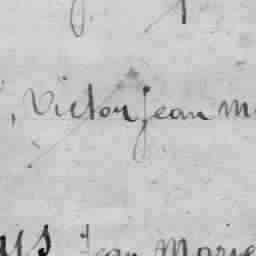 , Victor jean M
jean Marie